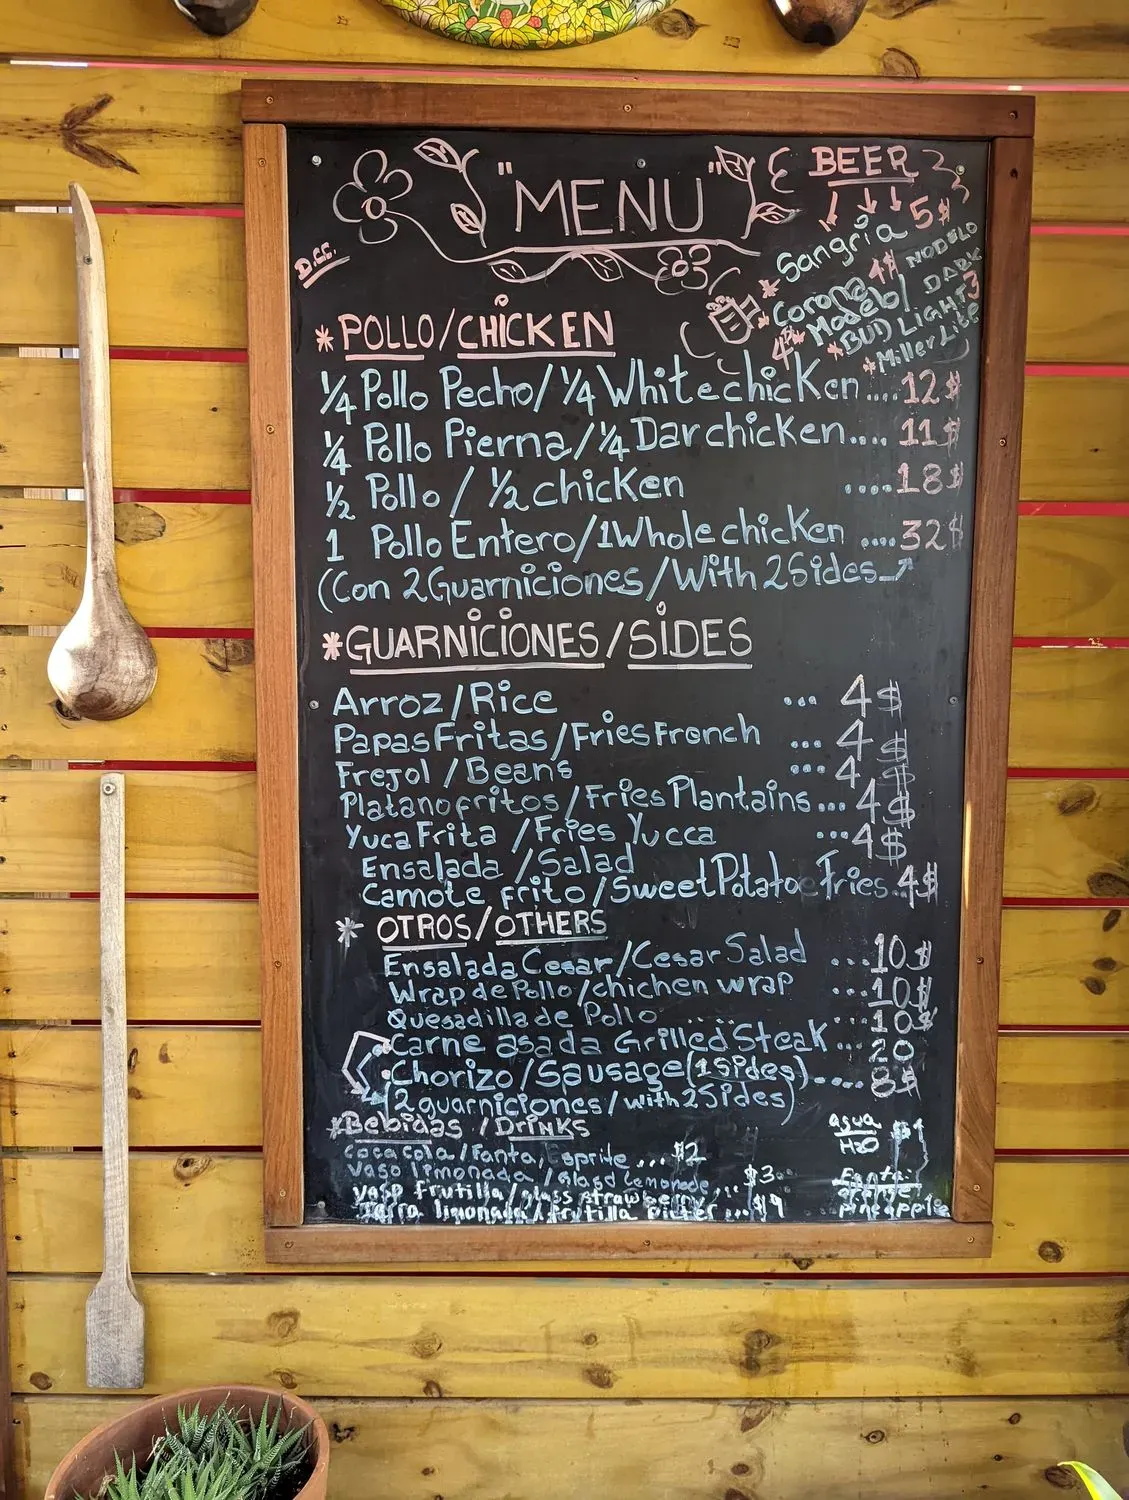 "MENU"
BEER
Sangria 5$
Corona 4$
Modelo / NODELO DARK
4$
BUD LIGHT 3
Miller Lite
*POLLO/CHICKEN
1/4 Pollo Pecho/ 1/4 White chicken....12$
1/4 Pollo Pierna/ 1/4 Dar chicken.... 11$
1/2 Pollo / 1/2 chicken ....18$
1 Pollo Entero/1Whole chicken ....32$
(Con 2 Guarniciones/With 2 Sides
*GUARNICIONES/SIDES
Arroz/Rice ... 4$
Papas Fritas/Fries Fronch ... 4$
Frejol/Beans ... 4$
Platano fritos/Fries Plantains... 4$
Yuca Frita /Fries Yucca ...4$
Ensalada /Salad
Camote frito/Sweet Potatoe Fries..4$
* OTROS/OTHERS
Ensalada Cesar/Cesar Salad ...10$
Wrap de Pollo/chichen wrap ...10$
Quesadilla de Pollo ...10$
Carne asada Grilled Steak... 20
Chorizo/Sausage(1 Sides).... 8$
(2 guarniciones/with 2 Sides)
*Bebidas /Drinks
coca cola/Fanta, sprite ... $2
vaso limonada/glass lemonade ... $3
vaso frutilla/glass strawberry
Jarra limonada/frutilla picter ... $9
agua
H2O $1
Fanta:
orange
pineapple